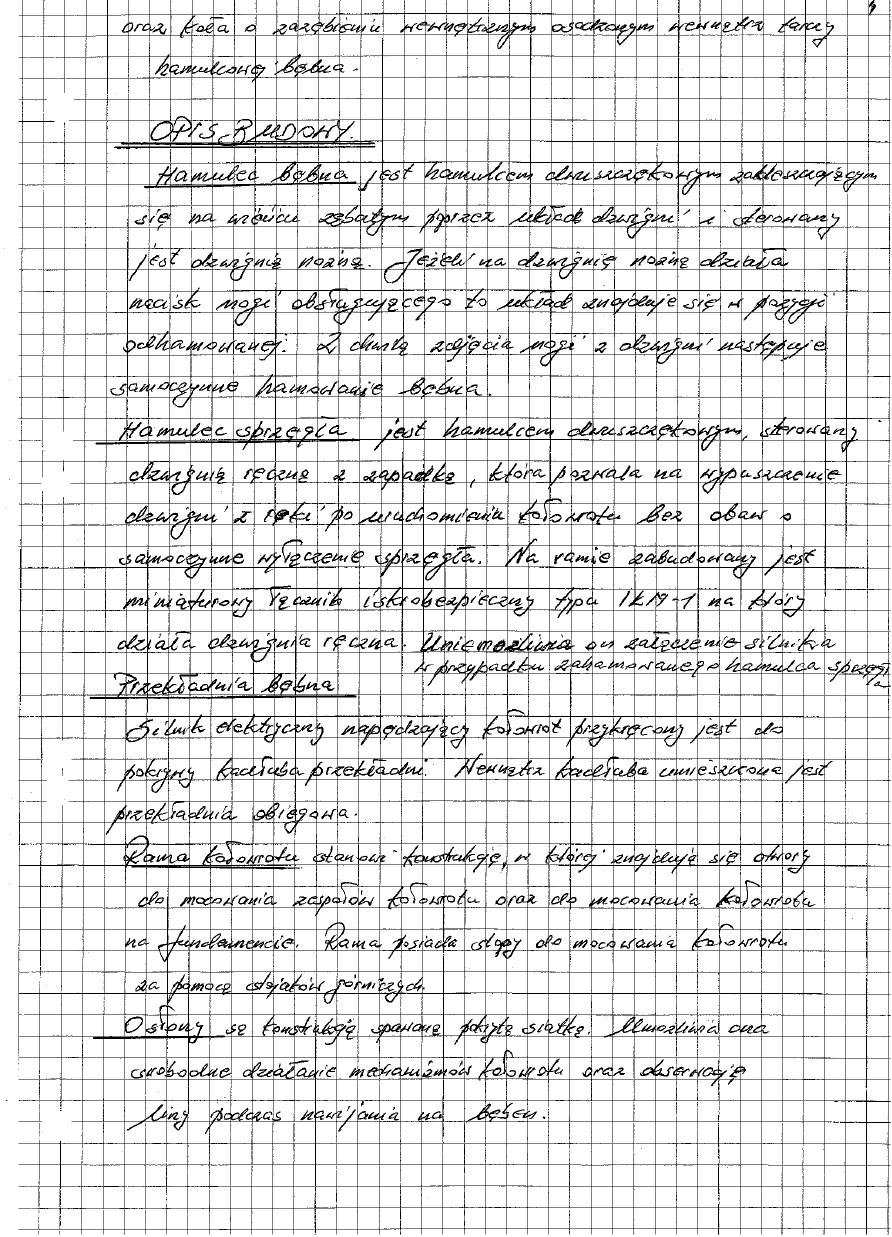 oraz koła o zazębieniu wewnętrznym osadzonym wewnątrz tarczy
hamulcowej bębna.
OPIS BUDOWY.
Hamulec bębna jest hamulcem dwuszczękowym zakleszczającym
się na wieńcu zębatym poprzez układ dźwigni i sterowany
jest dźwignią nożną. Jeżeli na dźwignię nożną działa
nacisk nogi obsługującego to układ znajduje się w pozycji
odhamowanej. Z chwilą zdjęcia nogi z dźwigni następuje
samoczynne hamowanie bębna.
Hamulec sprzęgła jest hamulcem dwuszczękowym, sterowany
dźwignią ręczną z zapadką, która pozwala na wypuszczenie
dźwigni z ręki po uruchomieniu kołowrotu bez obaw o
samoczynne wyłączenie sprzęgła. Na ramie zabudowany jest
miniaturowy łącznik iskrobezpieczny typu IKM-1 na który
działa dźwignia ręczna. Uniemożliwia on załączenie silnika
w przypadku zahamowanego hamulca sprzęgła
Przekładnia bębna
Silnik elektryczny napędzający kołowrót przykręcony jest do
pokrywy kadłuba przekładni. Wewnątrz kadłuba umieszczona jest
przekładnia obiegowa.
Rama kołowrotu stanowi konstrukcję, w której znajdują się otwory
do mocowania zespołów kołowrotu oraz do mocowania kołowrotu
na fundamencie. Rama posiada stopy do mocowania kołowrotu
za pomocą stojaków górniczych.
Osłony są konstrukcją spawaną pokrytą siatką. Umożliwia ona
swobodne działanie mechanizmów kołowrotu oraz obserwację
liny podczas nawijania na bęben.